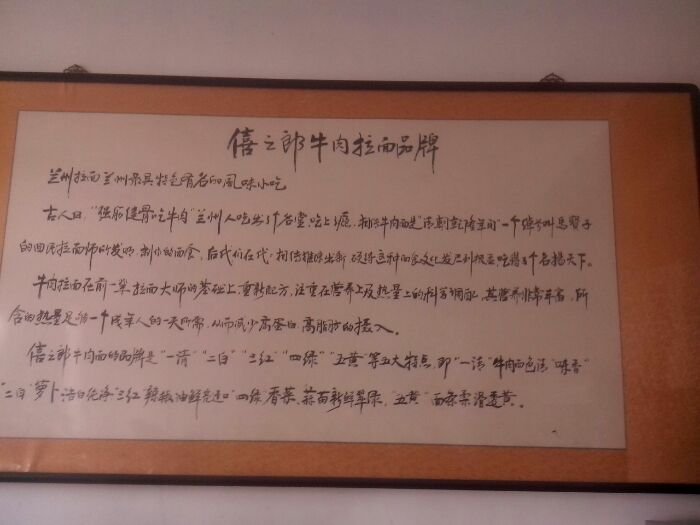 僖之郎牛肉拉面品牌
兰州拉面兰州最具特色有名的风味小吃
古人曰，"强筋健骨吃牛肉"兰州人吃出了名堂吃上了瘾，相传牛肉面是"清朝乾隆年间"一个绰号叫马胡子
的回民拉面师所发明，制作的面食，后我们在代代相传推陈出新，硬将这种面食文化发展到极至吃得了个名扬天下。
牛肉拉面在前一辈拉面大师的基础上，重新配方，注重在营养上及热量上的科学调配，其营养非常丰富，所
含的热量足够一个成年人的一天所需，从而减少高蛋白高脂肪的摄入。
僖之郎牛肉面的品牌是"一清""二白""三红""四绿""五黄"等五大特点，即"一清"牛肉面色清"味香"
"二白"萝卜洁白纯净"三红"辣椒油鲜亮"四绿"香菜、蒜苗新鲜翠绿，"五黄"面条柔滑透黄。